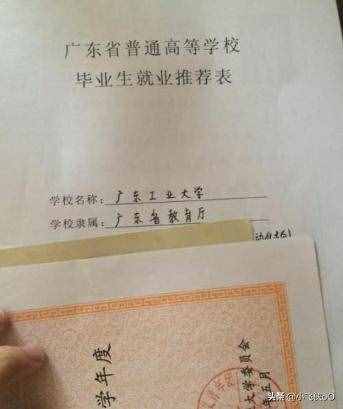 广东省普通高等学校
毕业生就业推荐表
学校名称：广东工业大学
学校隶属：广东省教育厅
学年度
大学委员会
五月
头条